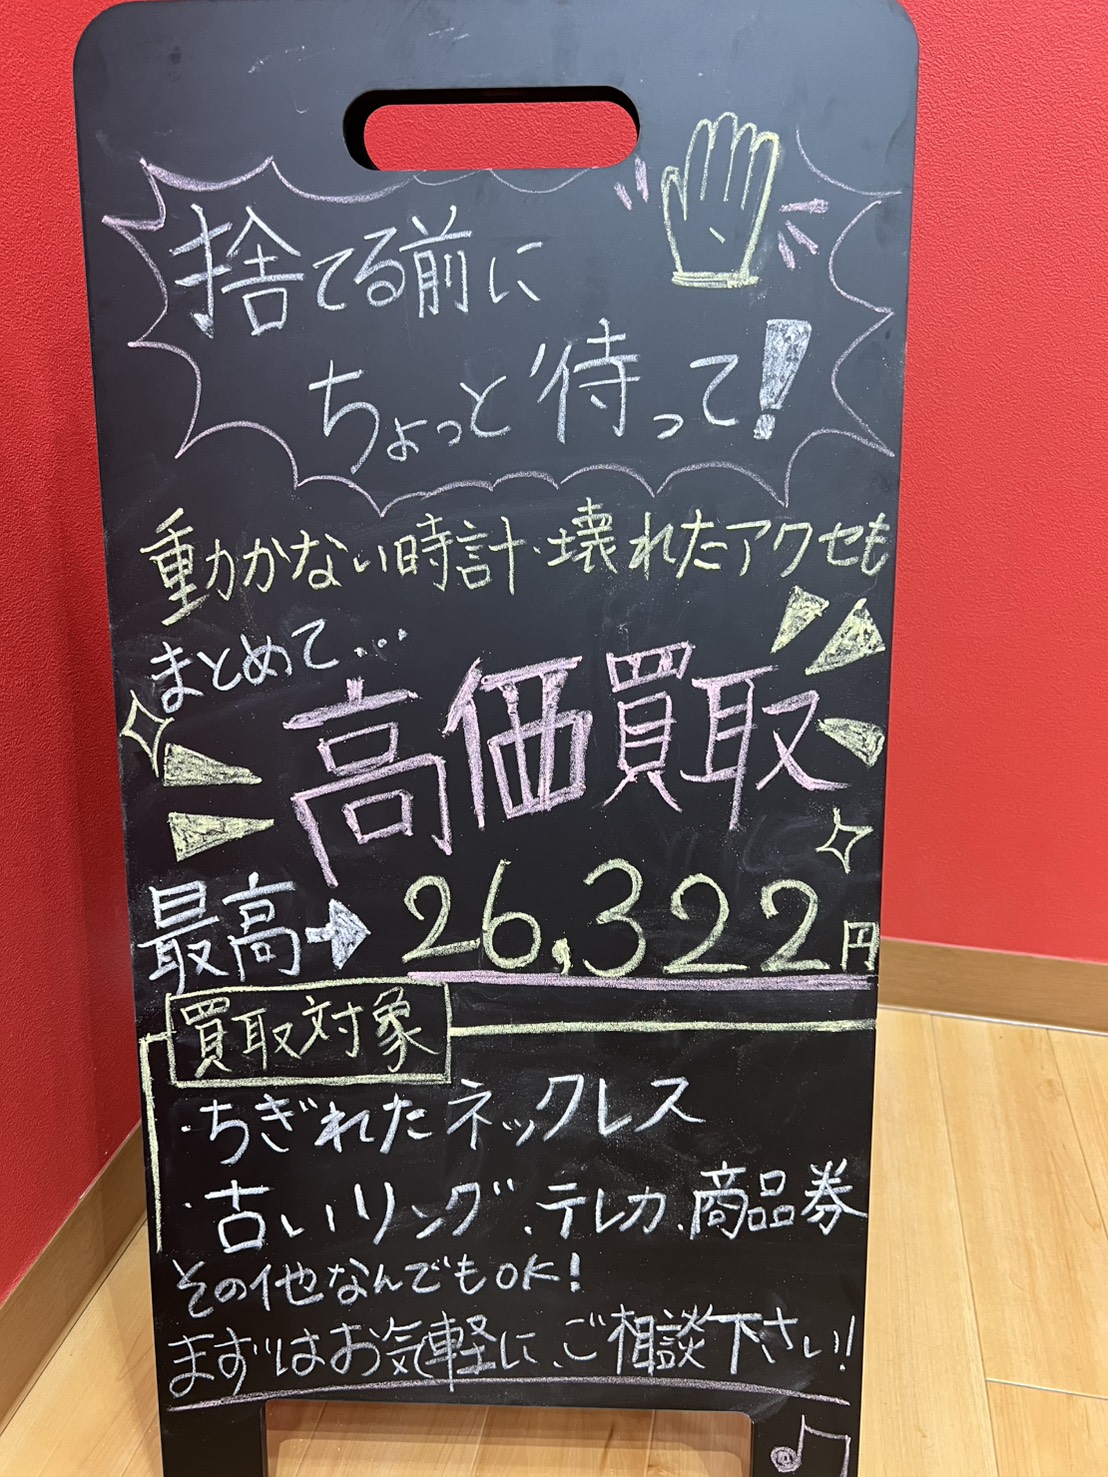 捨てる前に
ちょっと待って!
動かない時計・壊れたアクセも
まとめて...
高価買取
最高→26,322円
買取対象
・ちぎれたネックレス
・古いリング、テレカ、商品券
その他なんでもOK!
まずはお気軽に、ご相談下さい!!